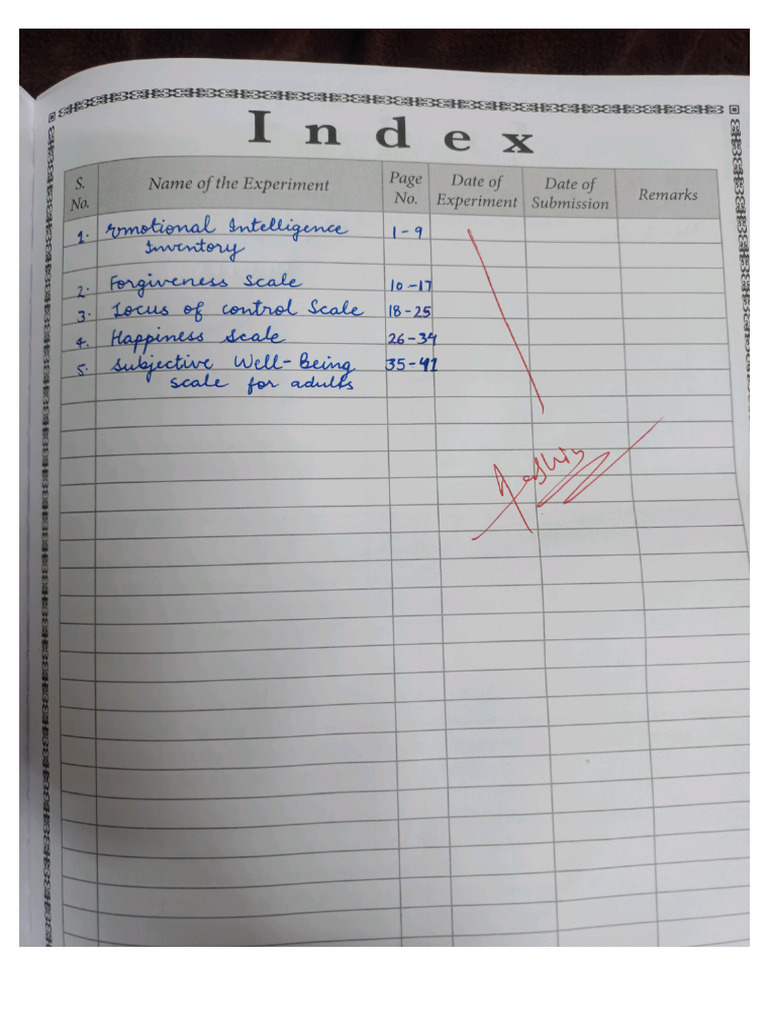 Index
S. No. Name of the Experiment Page No. Date of Experiment Date of Submission Remarks
1. Emotional Intelligence 1-9
Inventory
2. Forgiveness Scale 10-17
3. Locus of control Scale 18-25
4. Happiness Scale 26-34
5. Subjective Well-Being 35-41
scale for adults